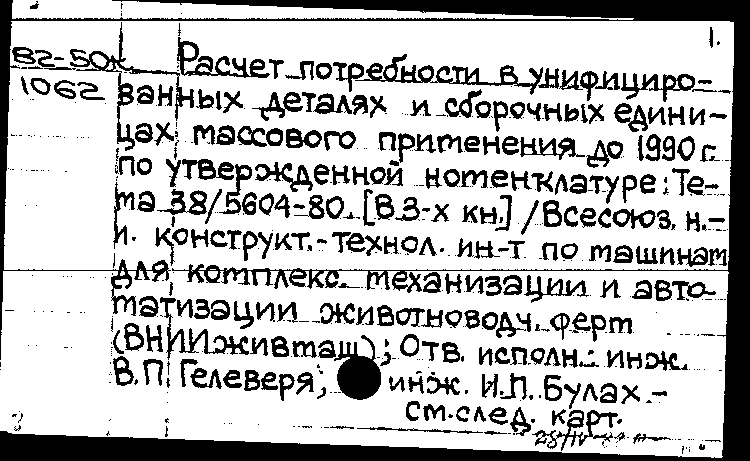 1.
В2-50ж Расчет потребности в унифициро-
1062 ванных деталях и сборочных едини-
цах массового применения до 1990 г.
по утвержденной номенклатуре: Те-
ма 38/5604-80. [В 3-х кн.] / Всесоюз. н.-
и. конструкт.-технол. ин-т по машинам
для комплекс. механизации и авто-
матизации животноводч. ферм
(ВНИИживмаш); Отв. исполн.: инж.
В.П. Гелеверя; инж. И.П. Булах.-
См. след. карт.